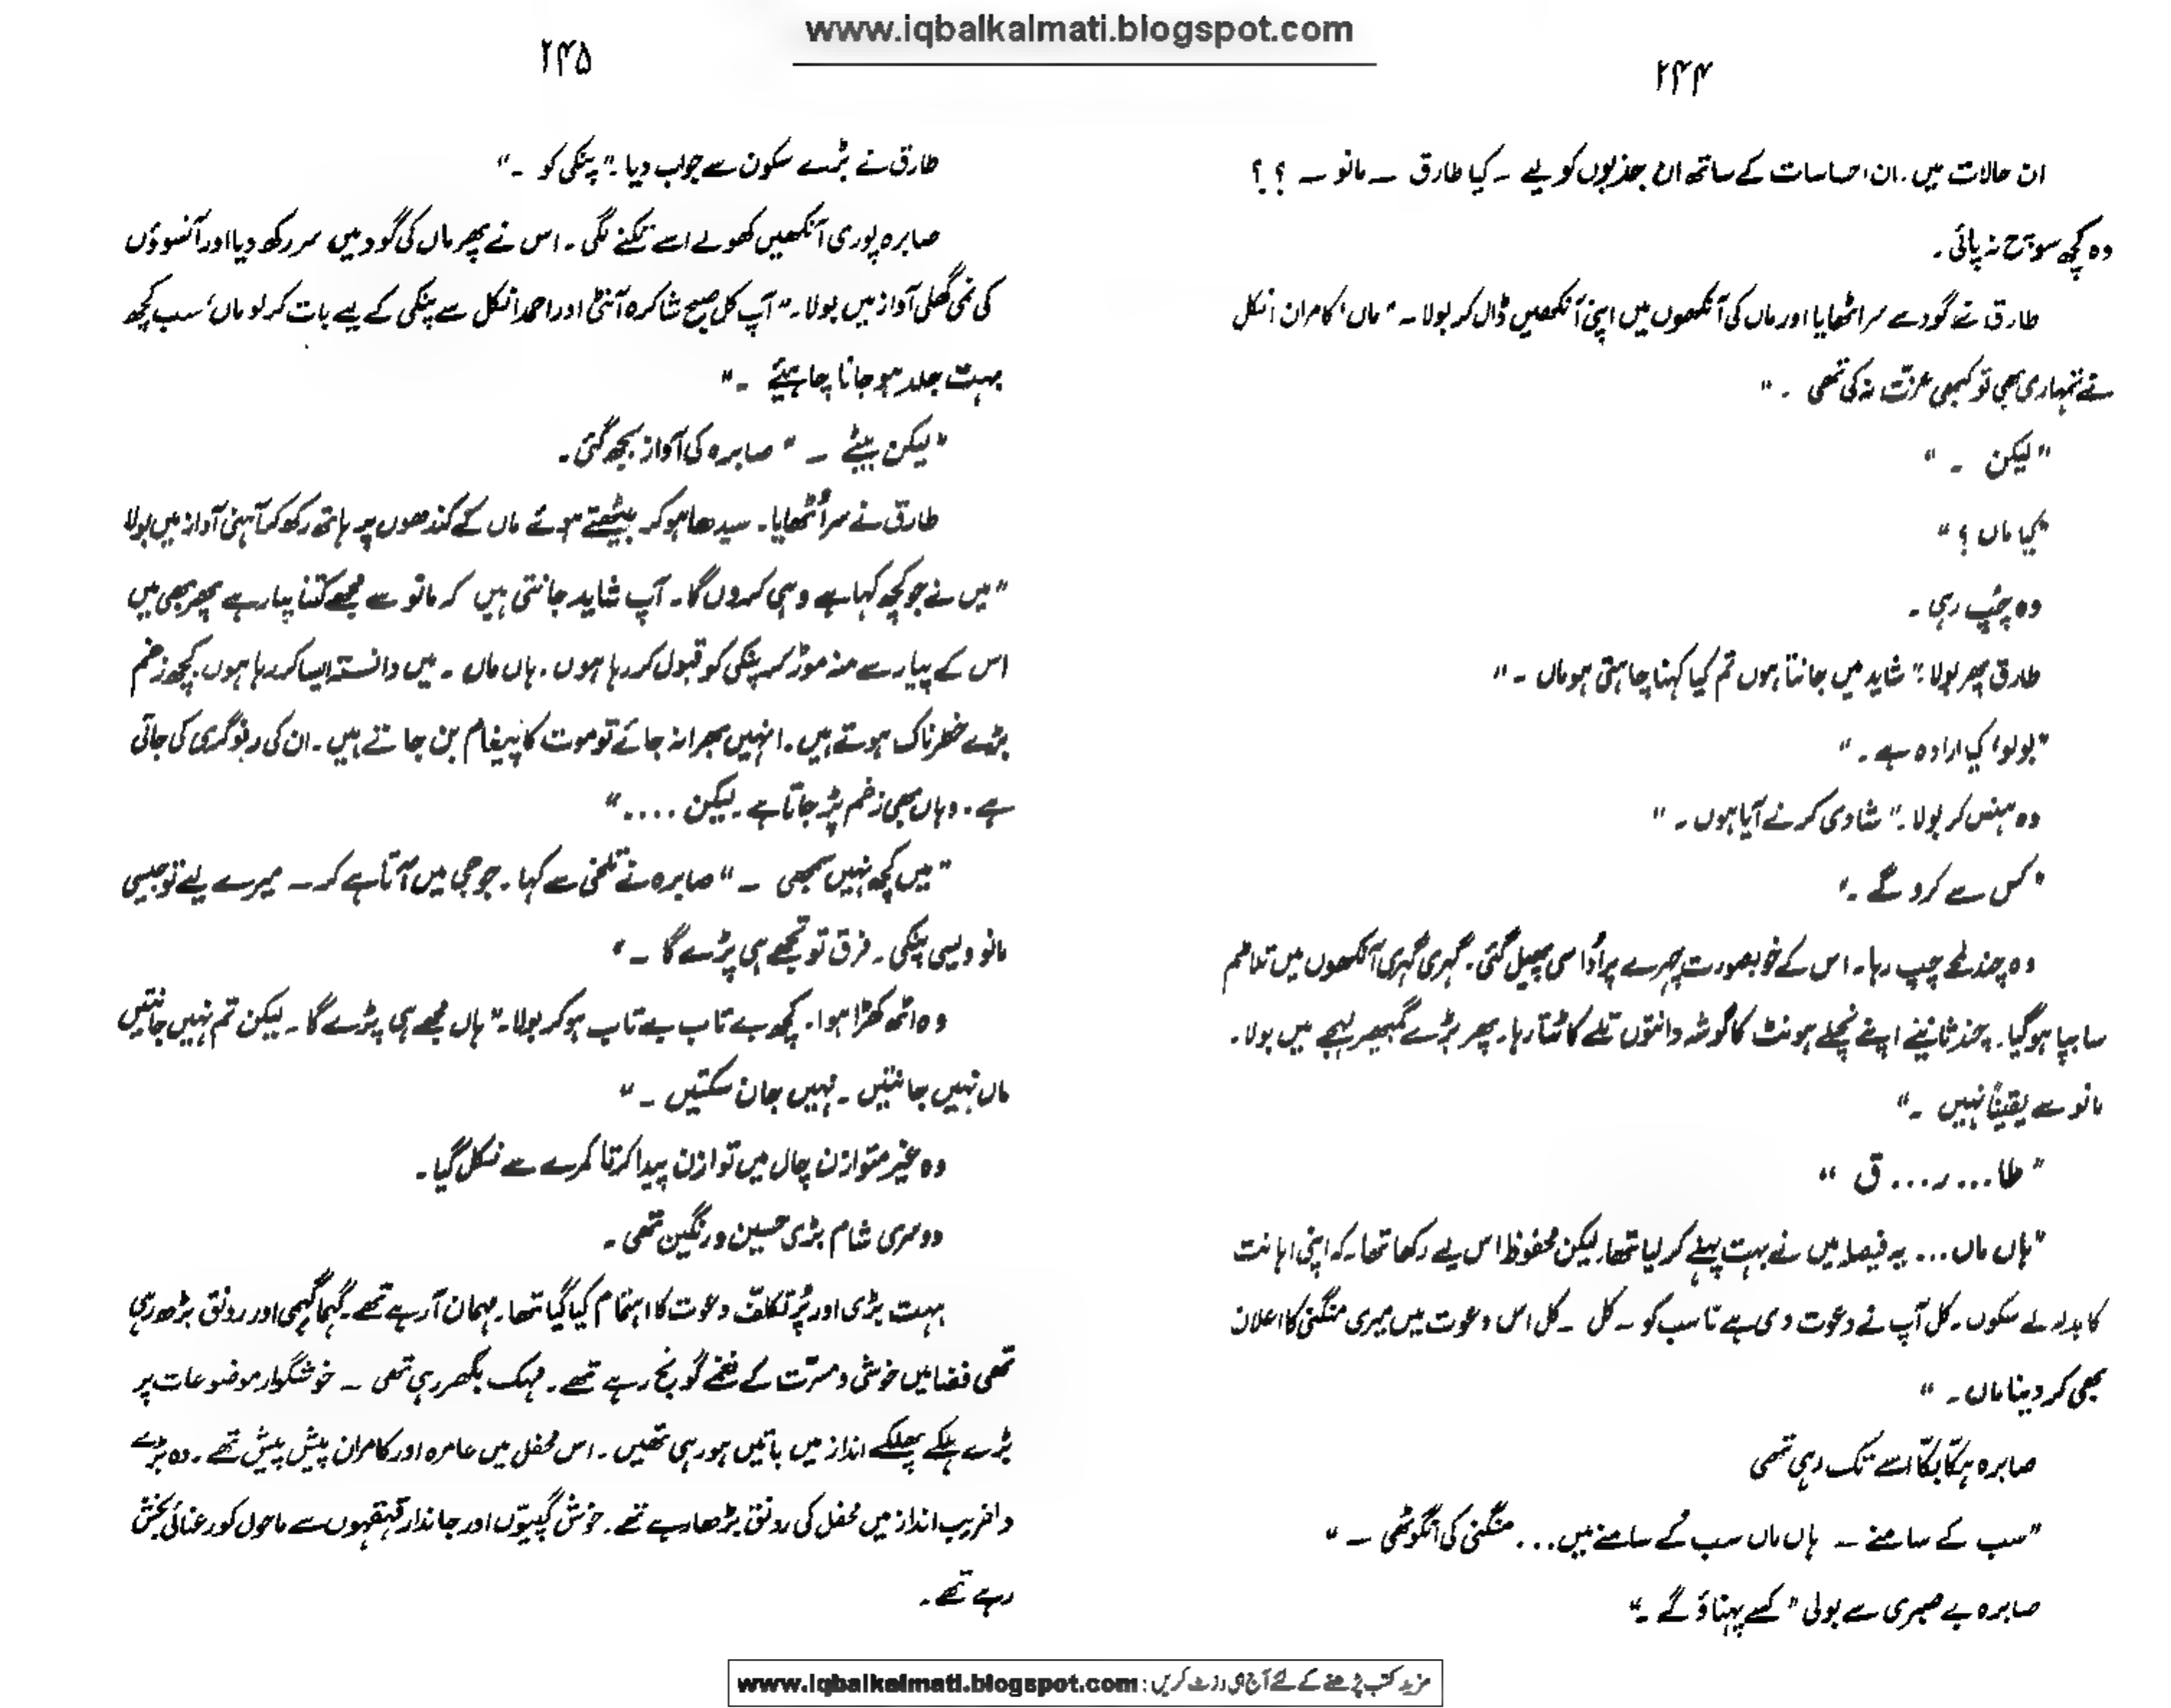 www.iqbalkalmati.blogspot.com
۲۴۴
ان حالات میں۔ ان احساسات کے ساتھ ان جذبوں کو لیے ۔ کیا طارق ۔۔ مانو ۔۔ ؟ ؟
وہ کچھ سوچ نہ پائی۔
طارق نے گود سے سر اٹھایا اور ماں کی آنکھوں میں اپنی آنکھیں ڈال کر بولا۔ "ماں' کامران انکل
نے تمہاری بھی تو کبھی عزت نہ کی تھی ۔ "
"لیکن ۔ "
"کیا ماں ؟ "
وہ چُپ رہی ۔
طارق پھر بولا۔ "شاید میں جانتا ہوں تم کیا کہنا چاہتی ہو ماں ۔ "
"بولو' کیا ارادہ ہے ۔ "
وہ ہنس کر بولا۔ "شادی کرنے آیا ہوں ۔ "
"کس سے کرو گے ۔"
وہ چند لمحے چپ رہا۔ اس کے خوبصورت چہرے پر اُداسی پھیل گئی۔ گہری گہری آنکھوں میں تلاطم
سا بپا ہوگیا۔ چند ثانیئے اپنے نچلے ہونٹ کا گوشہ دانتوں تلے کاٹتا رہا۔ پھر بڑے گمبھیر لہجے میں بولا۔
مانو سے یقیناً نہیں ۔"
"طا...ر...ق "
"ہاں ماں... یہ فیصلہ میں نے بہت پہلے کر لیا تھا۔ لیکن محفوظ اس لیے رکھا تھا۔ کہ اپنی اہانت
کا بدلہ لے سکوں۔ کل آپ نے دعوت دی ہے نا سب کو ۔ کل ۔ کل اس دعوت میں میری منگنی کا اعلان
بھی کر دینا ماں۔ "
صابرہ ہکّا بکّا اسے تک رہی تھی
"سب کے سامنے ۔۔ ہاں ماں سب کے سامنے میں... منگنی کی انگوٹھی ۔۔ "
صابرہ بے صبری سے بولی "کسے پہناؤ گے ۔"
۲۴۵
طارق نے بڑے سکون سے جواب دیا۔ "پنکی کو ۔"
صابرہ پوری آنکھیں کھولے اسے تکنے لگی ۔ اس نے پھر ماں کی گود میں سر رکھ دیا اور آنسوؤں
کی نمی گھلی آواز میں بولا۔ "آپ کل صبح شاکرہ آنٹی اور احمد انکل سے پنکی کے لیے بات کر لو ماں' سب کچھ
بہت جلد ہو جانا چاہیئے ۔"
"لیکن بیٹے ۔ " صابرہ کی آواز بجھ گئی۔
طارق نے سر اُٹھایا۔ سیدھا ہو کر بیٹھتے ہوئے ماں کے کندھوں پر ہاتھ رکھ کر آہنی آواز میں بولا
"میں نے جو کچھ کہا ہے وہی کروں گا۔ آپ شاید جانتی ہیں کہ مانو سے مجھے کتنا پیار ہے پھر بھی میں
اس کے پیار سے منہ موڑ کر پنکی کو قبول کر رہا ہوں۔ ہاں ماں ۔ میں دانستہ ایسا کر رہا ہوں۔ کچھ زخم
بڑے خطرناک ہوتے ہیں۔ انہیں بھرا نہ جائے تو موت کا پیغام بن جاتے ہیں۔ ان کی رفوگری کی جاتی
ہے۔ وہاں بھی زخم پڑ جاتا ہے۔ لیکن ...."
"میں کچھ نہیں سمجھی ۔ " صابرہ نے تلخی سے کہا۔ جو جی میں آتا ہے کر ۔۔ میرے لیے تو جیسی
مانو ویسی پنکی۔ فرق تو تجھے ہی پڑے گا ۔"
وہ اٹھ کھڑا ہوا۔ کچھ بے تاب بے تاب ہو کر بولا۔ "ہاں مجھے ہی پڑے گا۔ لیکن تم نہیں جانتیں
ماں نہیں جانتیں ۔ نہیں جان سکتیں ۔ "
وہ غیر متوازن چال میں توازن پیدا کرتا کمرے سے نکل گیا۔
دوسری شام بڑی حسین و رنگین تھی ۔
بہت بڑی اور پُر تکلف دعوت کا اہتمام کیا گیا تھا۔ مہمان آ رہے تھے۔ گہما گہمی اور رونق بڑھ رہی
تھی فضا میں خوشی و مسرّت کے نغمے گونج رہے تھے۔ مہک بکھر رہی تھی ۔۔ خوشگوار موضوعات پر
بڑے ہلکے پھلکے انداز میں باتیں ہو رہی تھیں ۔ اس محفل میں عامرہ اور کامران پیش پیش تھے ۔ وہ بڑے
دلفریب انداز میں محفل کی رونق بڑھا رہے تھے۔ خوش گپیوں اور جاندار قہقہوں سے ماحول کو رعنائی بخش
رہے تھے۔
مزید کتب پڑھنے کے لئے آج ہی وزٹ کریں : www.iqbalkalmati.blogspot.com